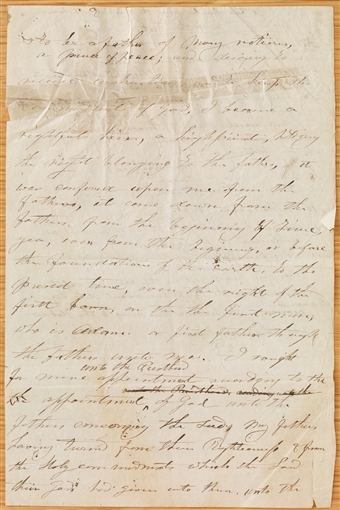 to be a father of many nations,
a prince of peace; and desiring to
receive instructions and to keep the
commandments of god, I became a
rightful heir, a high priest, holding
the right belonging to the fathers, it
was confered upon me from the
fathers, it came down from the
fathers, from the beginning of time
yea, even from the beginning, or before
the foundations of the Earth. to the
present time, even the right of the
first born, on the the first man,
who is Adam. or first father through
the fathers unto me. I sought
unto the Priesthood
for mine appointment according to the
appointment of God unto the
fathers concerning the Seed. My fathers
having turned from their Righteousness & from
the Holy commandments which the Lord
their God had given unto them. unto the